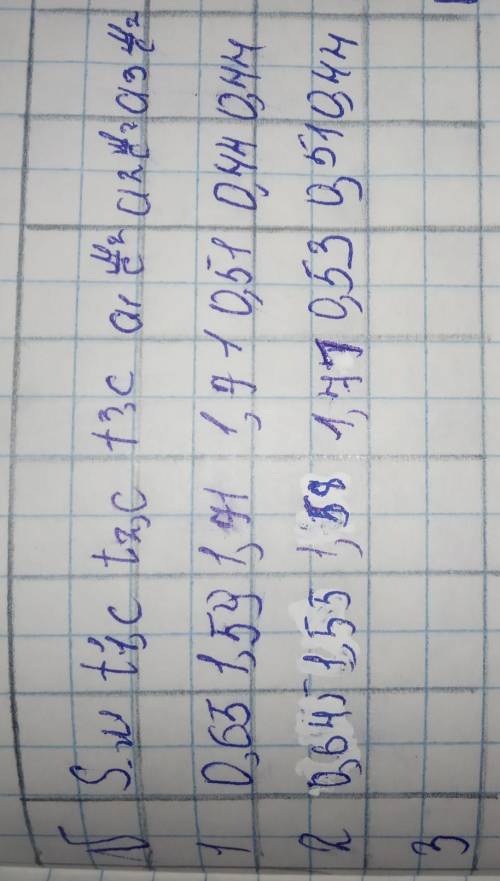 N S,м t1,с t2,с t3,с a1 м/с² a2 м/с² a3 м/с²
1 0,65 1,59 1,71 1,71 0,51 0,44 0,44
2 0,645 1,55 1,58 1,71 0,53 0,51 0,44
3